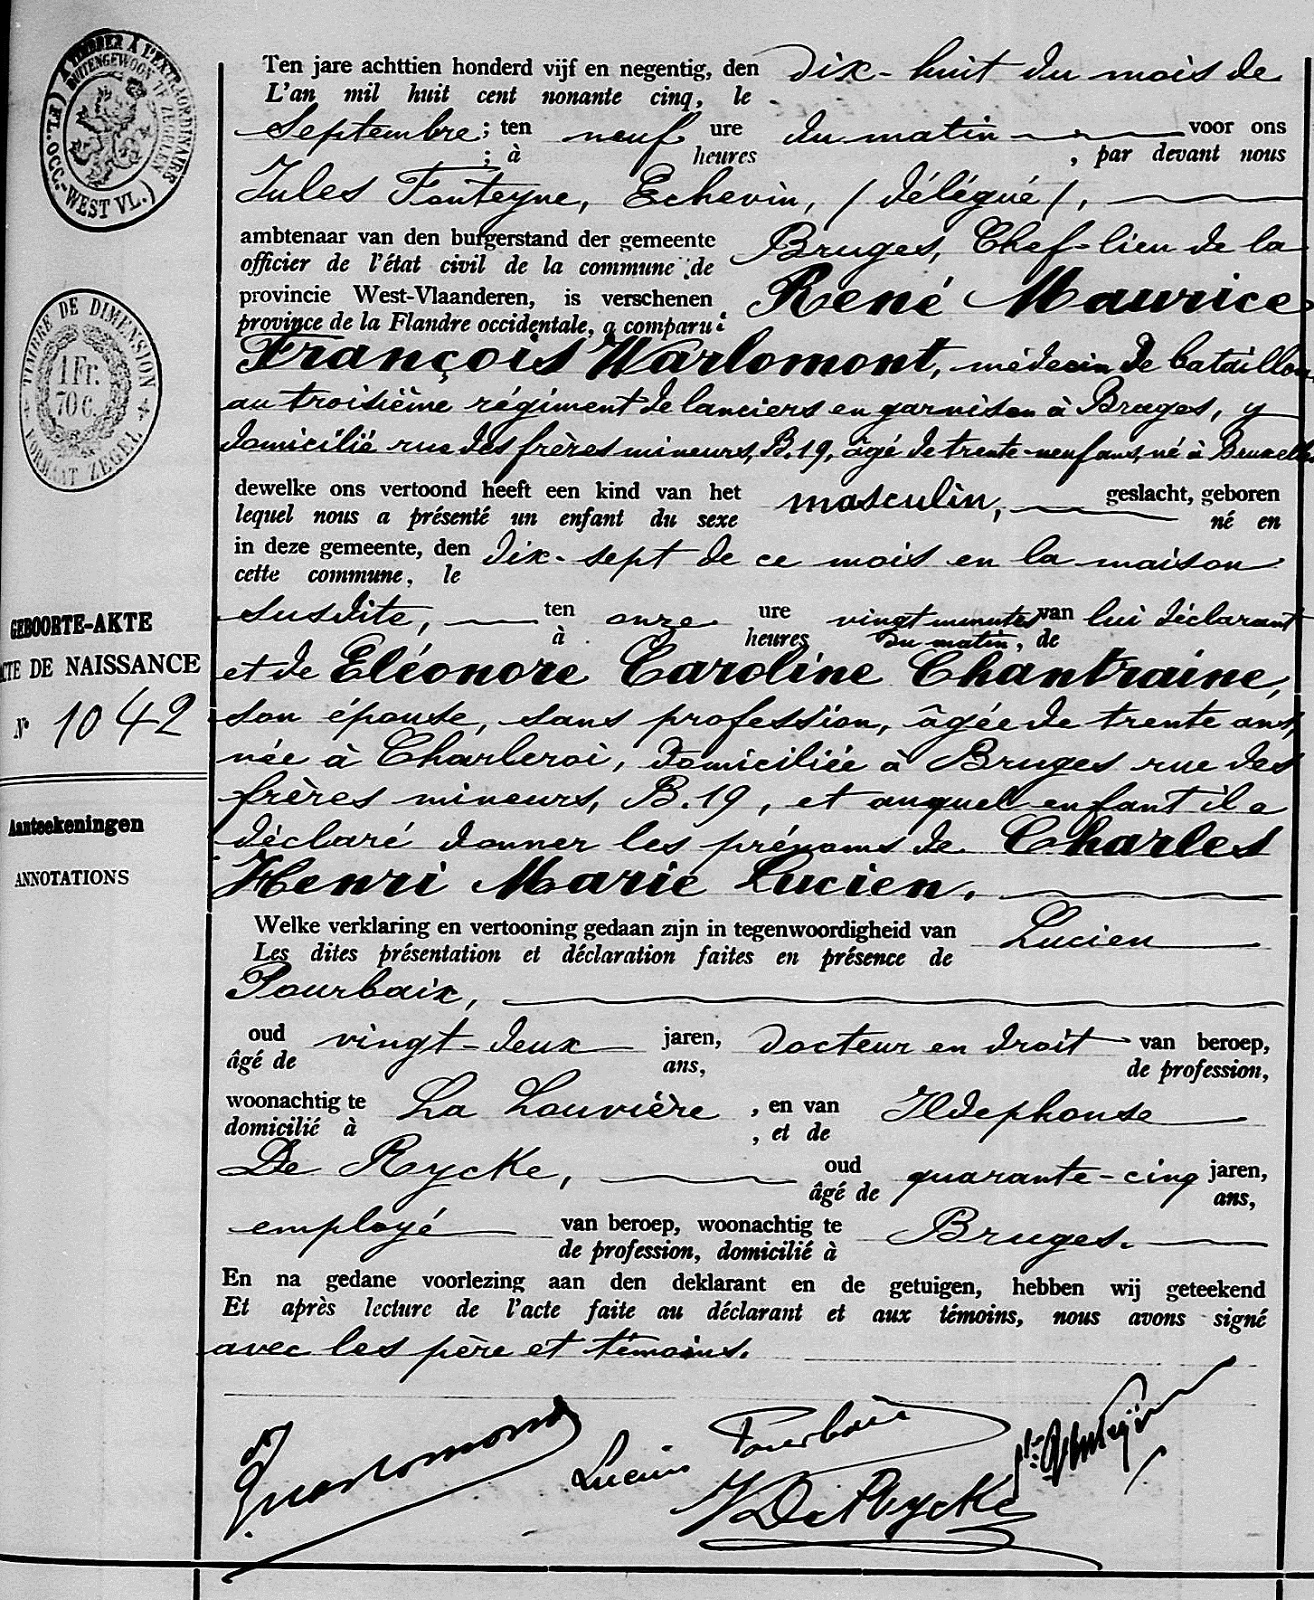 A TIMBRER A L'EXTRAORDINAIRE
BUITENGEWOON TE ZEGELEN
(FL. OCC.-WEST VL.)
TIMBRE DE DIMENSION
1 Fr.
70 c.
FORMAAT ZEGEL
GEBOORTE-AKTE
ACTE DE NAISSANCE
N° 1042
Aanteekeningen
ANNOTATIONS
Ten jare achttien honderd vijf en negentig, den dix-huit du mois de
L'an mil huit cent nonante cinq, le
Septembre; ten neuf ure du matin voor ons
; à heures , par devant nous
Jules Fonteyne, Echevin, (délégué),
ambtenaar van den burgerstand der gemeente Bruges, Chef-lieu de la
officier de l'état civil de la commune de
provincie West-Vlaanderen, is verschenen René Maurice
province de la Flandre occidentale, a comparu:
François Warlomont, médecin de bataillon
au troisième régiment de lanciers en garnison à Bruges, y
domicilié rue des frères mineurs, B.19, âgé de trente-neuf ans, né à Bruxelles
dewelke ons vertoond heeft een kind van het masculin, geslacht, geboren
lequel nous a présenté un enfant du sexe né en
in deze gemeente, den dix-sept de ce mois en la maison
cette commune, le
susdite, ten onze ure vingt minutes van lui déclarant
à heures du matin, de
et de Eléonore Caroline Chantraine,
son épouse, sans profession, âgée de trente ans,
née à Charleroi, domiciliée à Bruges rue des
frères mineurs, B.19, et auquel enfant il a
déclaré donner les prénoms de Charles
Henri Marie Lucien.
Welke verklaring en vertooning gedaan zijn in tegenwoordigheid van Lucien
Les dites présentation et déclaration faites en présence de
Pourbaix,
oud vingt-deux jaren, docteur en droit van beroep,
âgé de ans, de profession,
woonachtig te La Louvière , en van Ildephonse
domicilié à , et de
De Rycke, oud quarante-cinq jaren,
âgé de ans,
employé van beroep, woonachtig te Bruges.
de profession, domicilié à
En na gedane voorlezing aan den deklarant en de getuigen, hebben wij geteekend
Et après lecture de l'acte faite au déclarant et aux témoins, nous avons signé
avec les père et témoins.
Lucien Pourbaix
De Rycke